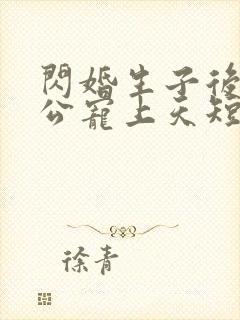 閃婚生子後
公寵上天短
徐青